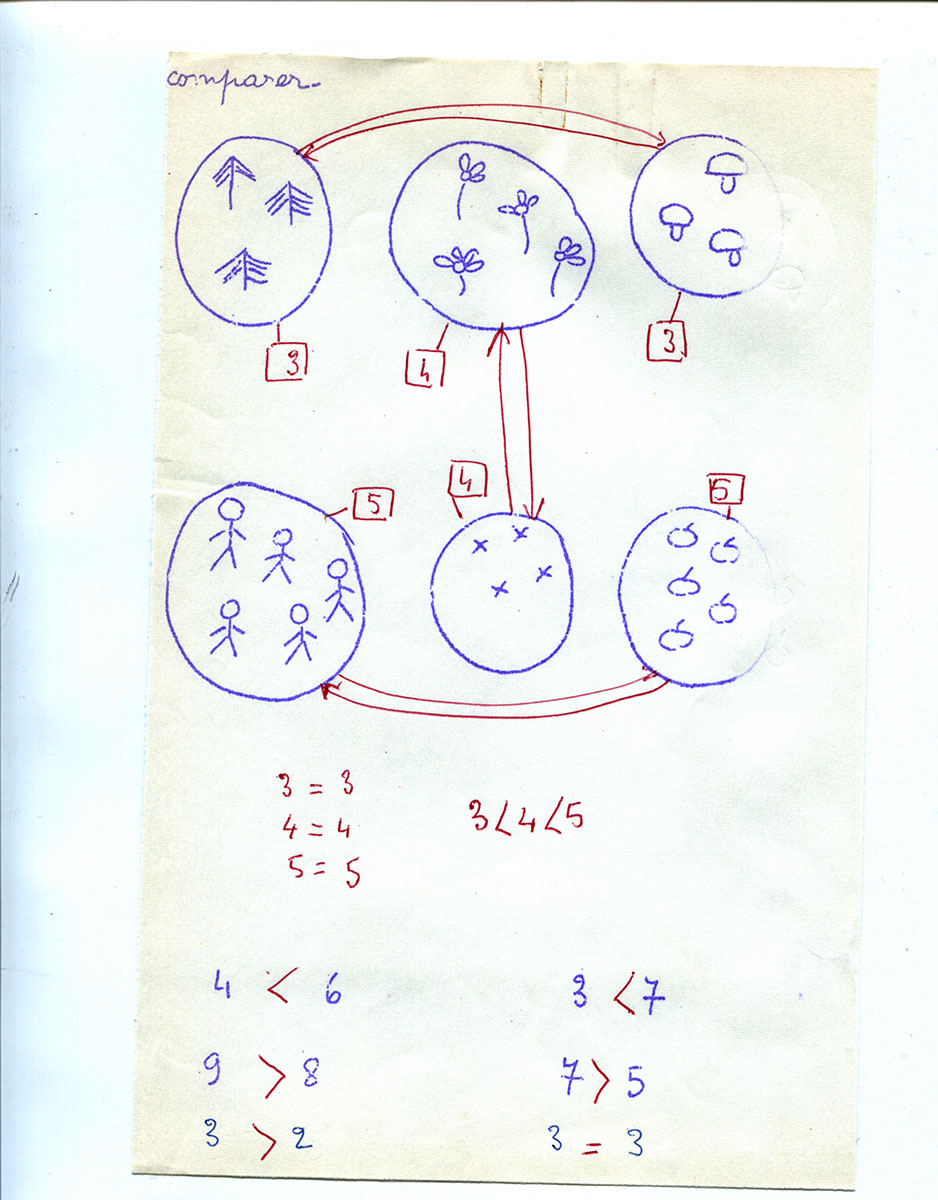 comparer.
3 4 3
5 4 5
3 = 3
4 = 4 3 < 4 < 5
5 = 5
4 < 6 3 < 7
9 > 8 7 > 5
3 > 2 3 = 3